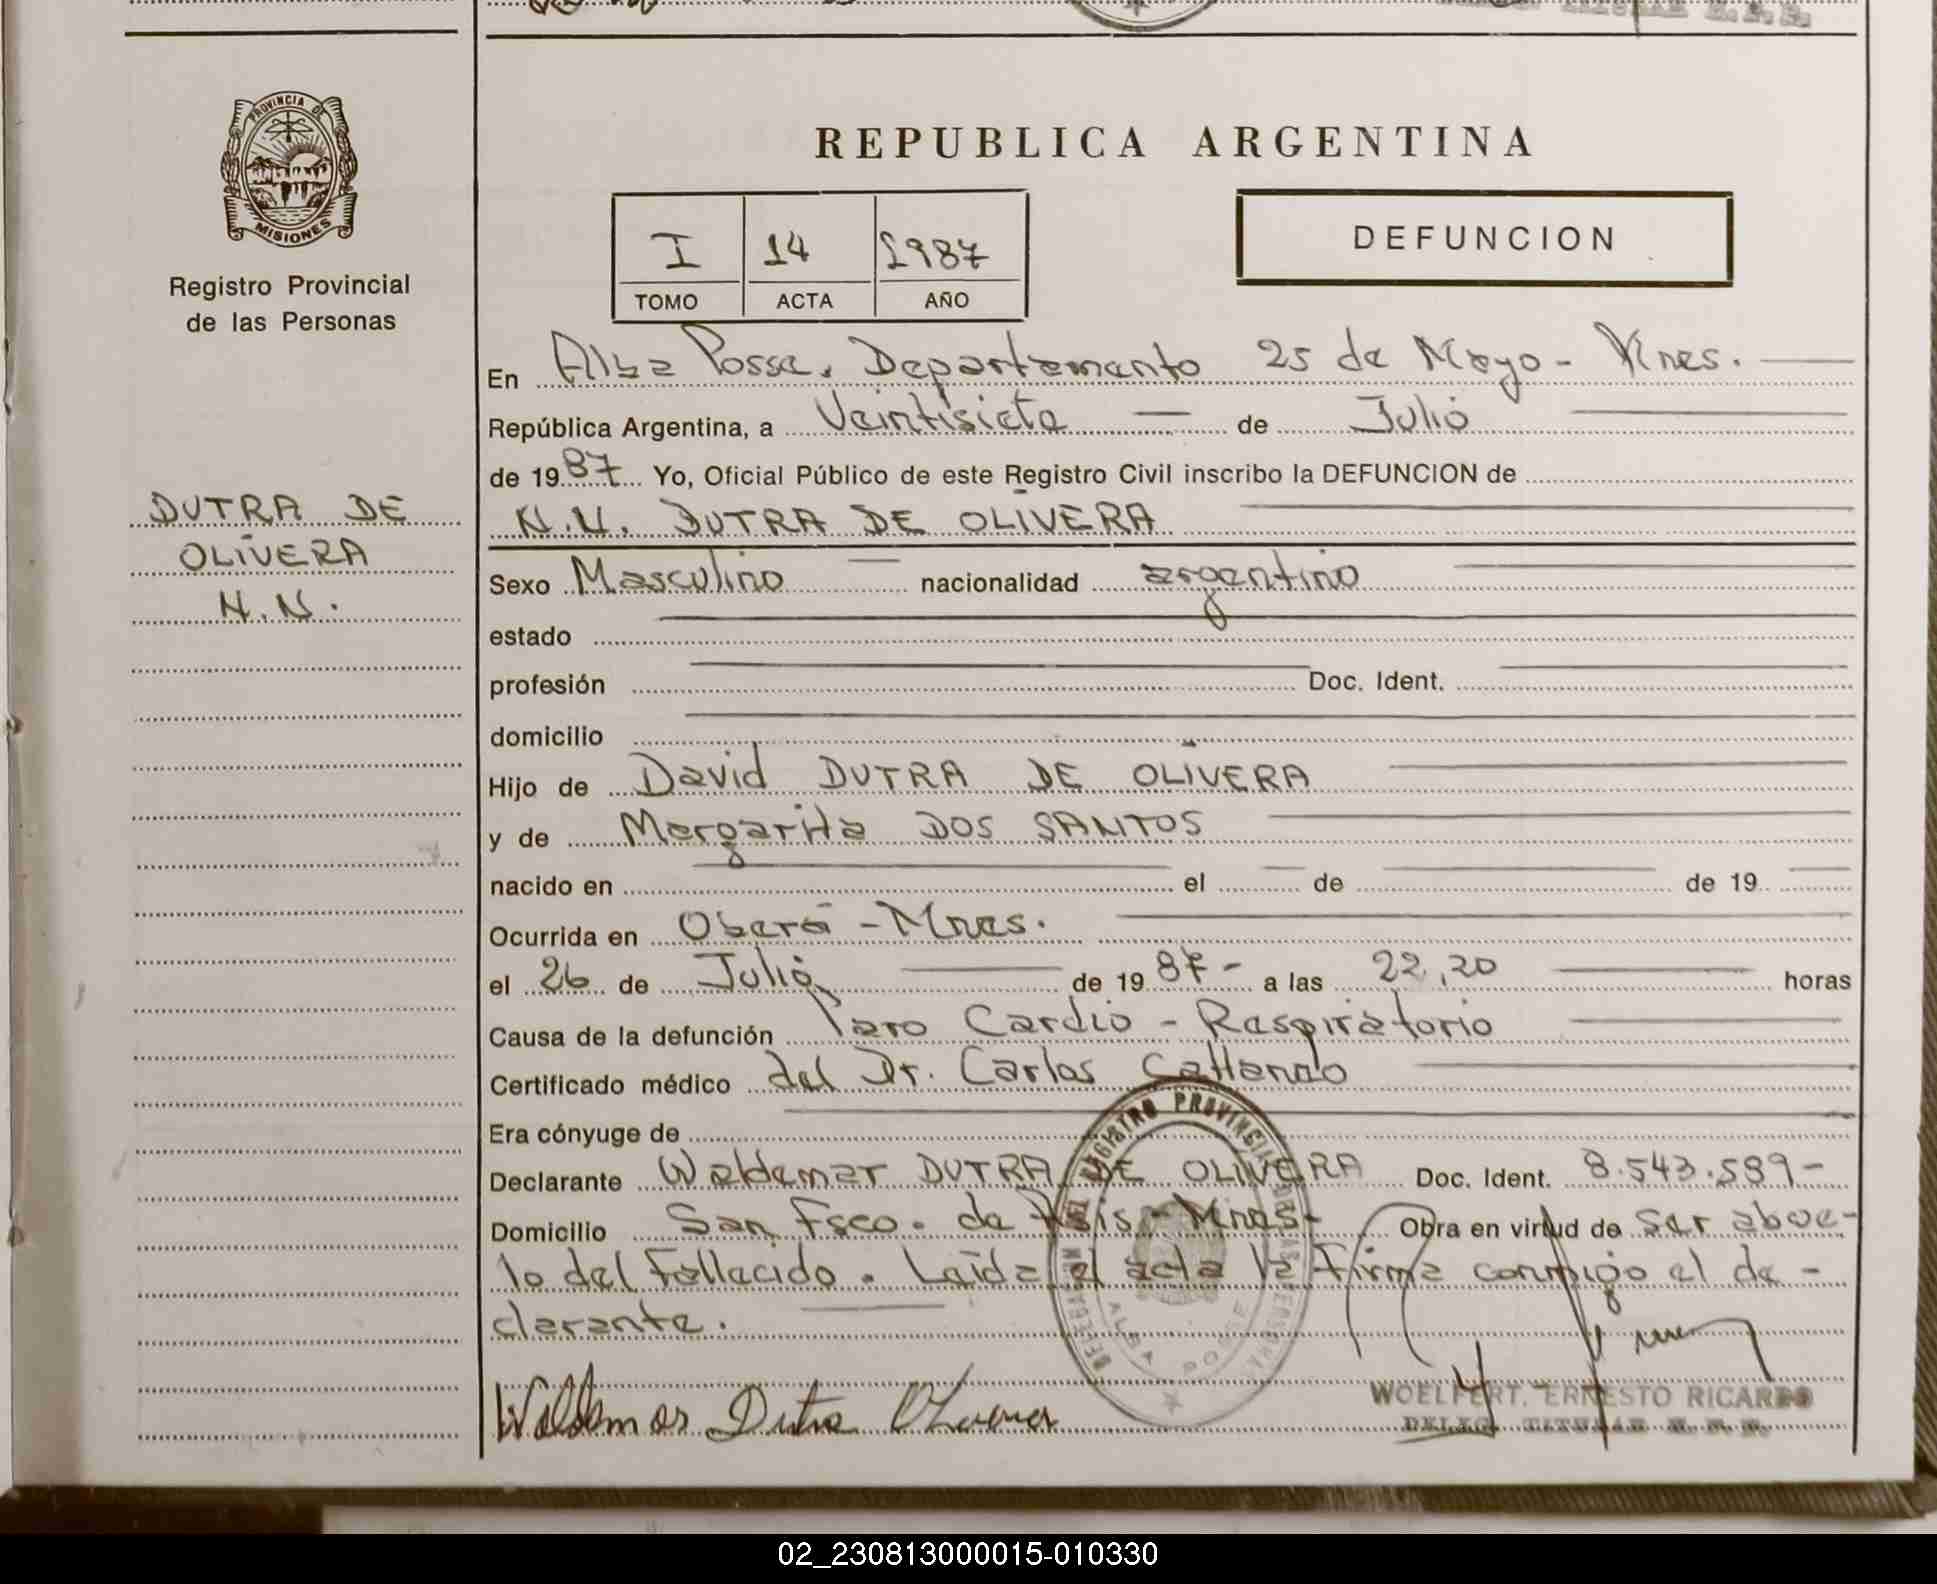 PROVINCIA DE
MISIONES
Registro Provincial
de las Personas
DUTRA DE
OLIVERA
N.N.
REPUBLICA ARGENTINA
I 14 1987
TOMO ACTA AÑO
DEFUNCION
En Alba Posse. Departamento 25 de Mayo - Mnes.
República Argentina, a Veintisiete de Julio
de 1987 Yo, Oficial Público de este Registro Civil inscribo la DEFUNCION de
N.N. DUTRA DE OLIVERA
Sexo Masculino nacionalidad argentino
estado
profesión Doc. Ident.
domicilio
Hijo de David DUTRA DE OLIVERA
y de Margarita DOS SANTOS
nacido en el de de 19
Ocurrida en Oberá - Mnes.
el 26 de Julio de 1987 - a las 22,20 horas
Causa de la defunción Paro Cardio - Respiratorio
Certificado médico del Dr. Carlos
Era cónyuge de
Declarante Waldemar DUTRA DE OLIVERA Doc. Ident. 8.543.589 -
Domicilio San Fsco. de Asis - Mnes - Obra en virtud de ser abue-
lo del fallecido. Leída el acta la firma conmigo el de -
clarante.
REGISTRO PROVINCIAL
ALBA POSSE
Waldemar Dutra Olivera
WOELFERT. ERNESTO RICARDO
DELEG. TITULAR R.P.P.
02_230813000015-010330